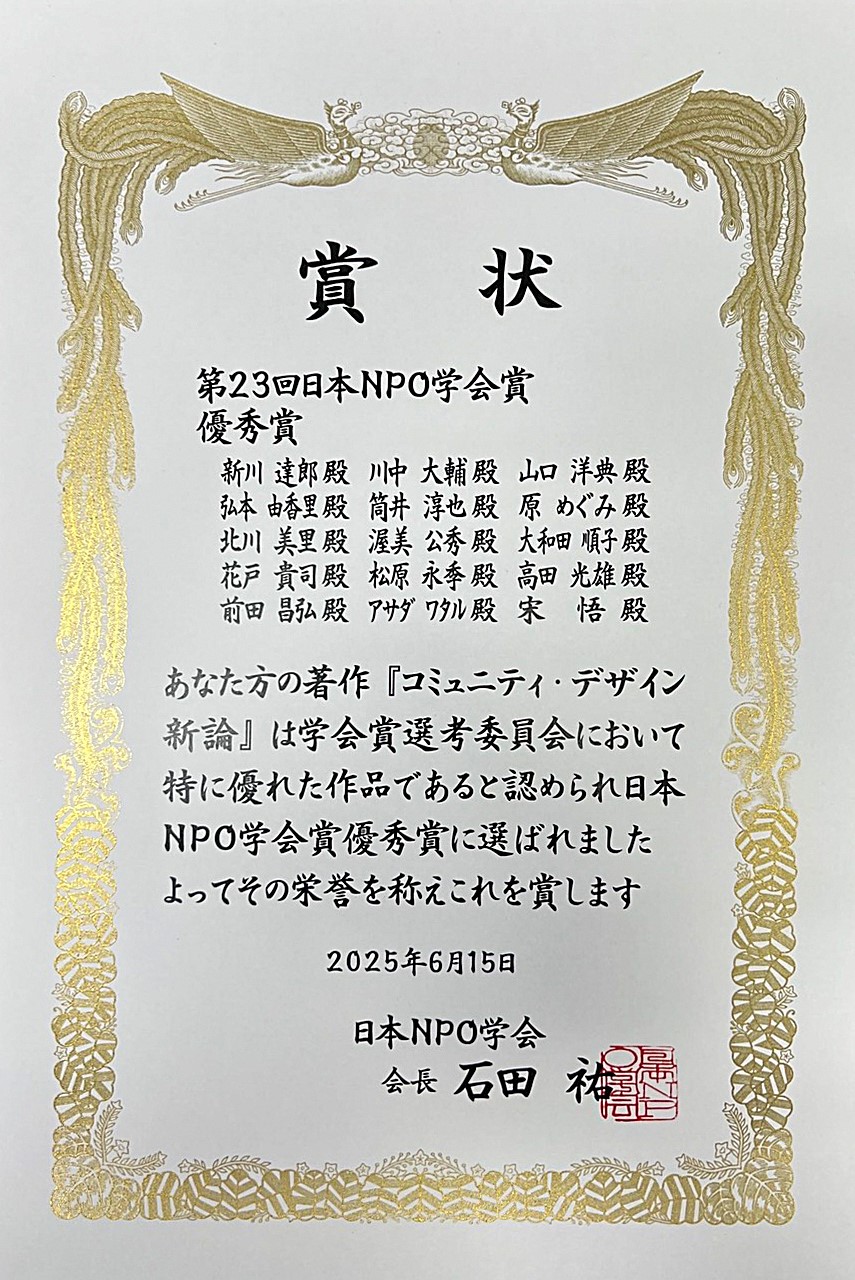 賞 状
第23回日本NPO学会賞
優秀賞
新川 達郎 殿 川中 大輔 殿 山口 洋典 殿
弘本 由香里 殿 筒井 淳也 殿 原 めぐみ 殿
北川 美里 殿 渥美 公秀 殿 大和田 順子 殿
花戸 貴司 殿 松原 永季 殿 高田 光雄 殿
前田 昌弘 殿 アサダ ワタル 殿 宋 悟 殿
あなた方の著作『コミュニティ・デザイン
新論』は学会賞選考委員会において
特に優れた作品であると認められ日本
NPO学会賞優秀賞に選ばれました
よってその栄誉を称えこれを賞します
2025年6月15日
日本NPO学会
会長 石田 祐